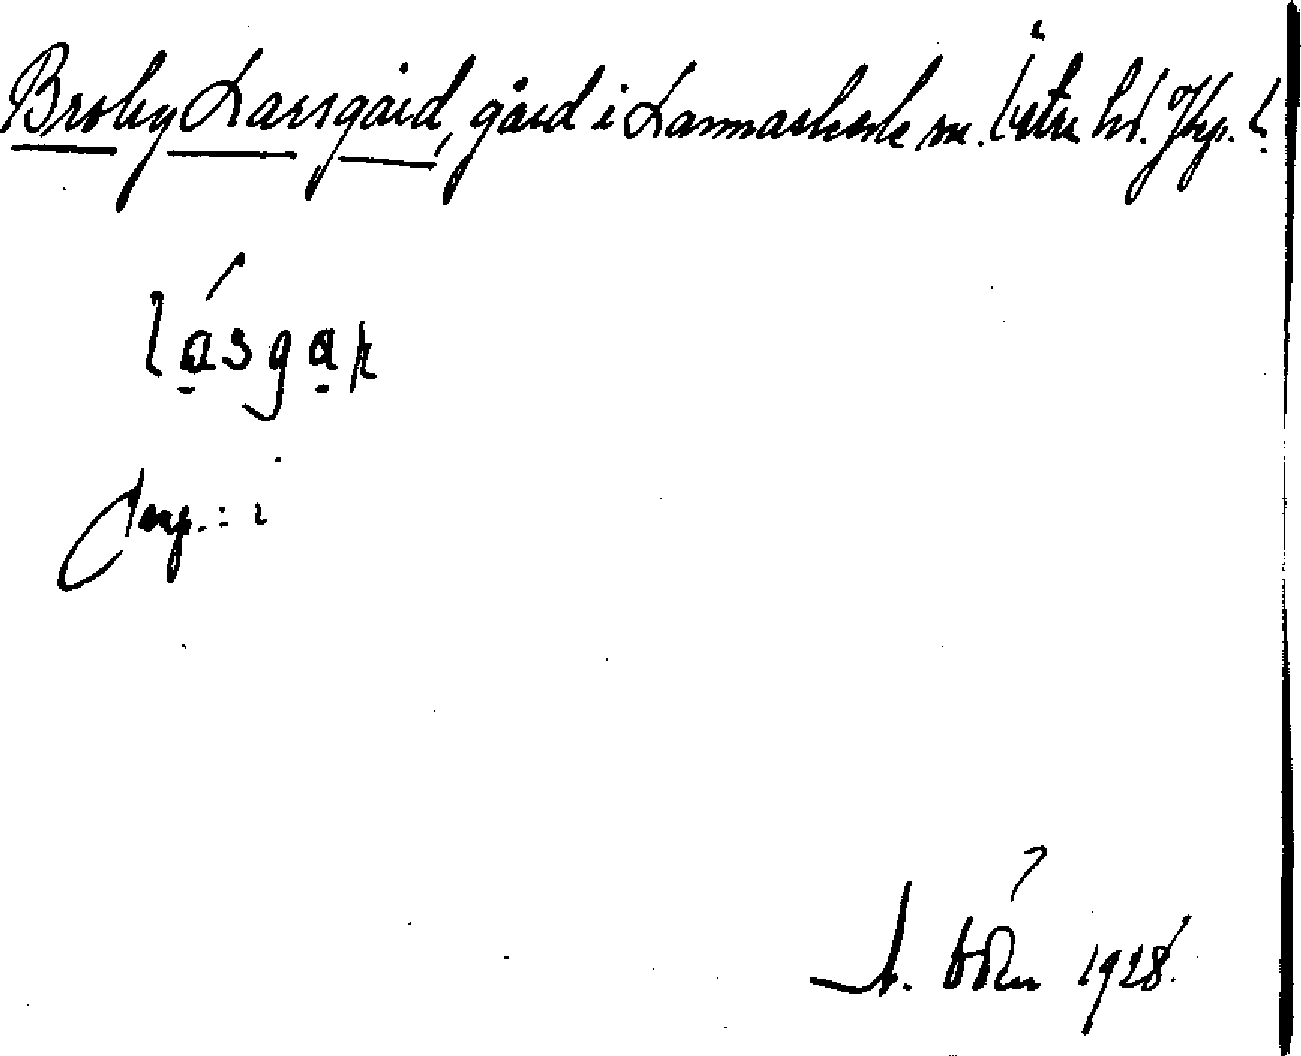 Broby Larsgård, gård i Lannaskede sn. Östra hd. Jkp. l.
lásgaṛ
Prep.: i
1928.